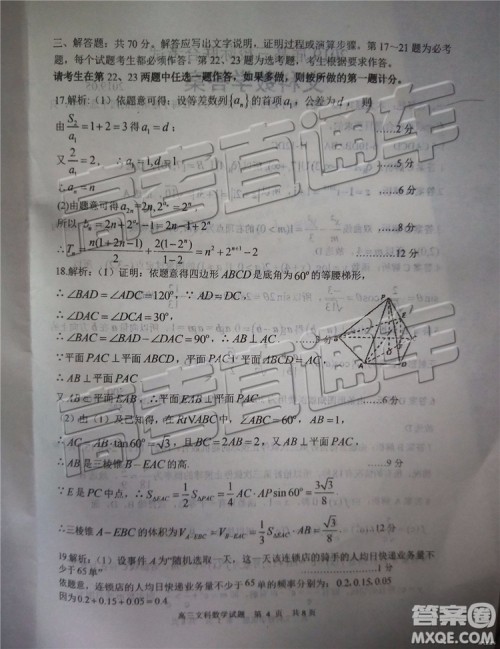 三、解答题：共 70 分。解答应写出文字说明，证明过程或演算步骤。第 17～21 题为必考
题，每个试题考生都必须作答。第 22、23 题为选考题，考生根据要求作答。
请考生在第 22、23 两题中任选一题作答，如果多做，则按所做的第一题计分。
17.解析：（1）依题意可得：设等差数列{aₙ}的首项a₁，公差为d，则
由S₂/a₁=1+2=3得a₁=d；……2分
又2/a₁=2，∴a₁=1,d=1……5分
aₙ=n……6分
(2)由题意可得a₂ₙ=2n,2^{aₙ}=2ⁿ，
所以bₙ=2n+2ⁿ-1=2n-1+2ⁿ，……8分
∴Tₙ=n(1+2n-1)/2+2(1-2ⁿ)/(1-2)=n²+2ⁿ⁺¹-2……12分
18.解析：（1）证明：依题意得四边形ABCD是底角为60°的等腰梯形，
∴∠BAD=∠ADC=120°，∵AD=DC，
∴∠DAC=∠DCA=30°
∴∠BAC=∠BAD-∠DAC=90°，∴AB⊥AC……3分
∵平面PAC⊥平面ABCD，平面PAC∩平面ABCD=AC，
∴AB⊥平面PAC
又AB⊂平面ABE，∴平面ABE⊥平面PAC。……6分
（2）由（1）及已知得，在Rt△ABC中，∠ABC=60°，AB=1，
∴AC=AB·tan60°=√3，且BC=2AB=2，又AB⊥平面PAC，
∴AB是三棱锥B-EAC的高.……9分
∵E是PC中点，∴S△EAC=1/2S△PAC=1/4AC·APsin60°=3√3/8
∴三棱锥A-EBC的体积为V_{A-EBC}=V_{B-EAC}=1/3S△EAC·AB=√3/8……12分
19.解析：（1）设事件A为“随机选取一天，这一天该连锁店的骑手的人均日快递业务量不
少于65单”
依题意，连锁店的人均日快递业务量不少于65单的频率分别为：0.2, 0.15, 0.05
因为0.2+0.15+0.05=0.4
高三文科数学试题 第 4 页 共 8 页
高考直通车
高考直通车
高考直通车
答案圈
MXQE.COM